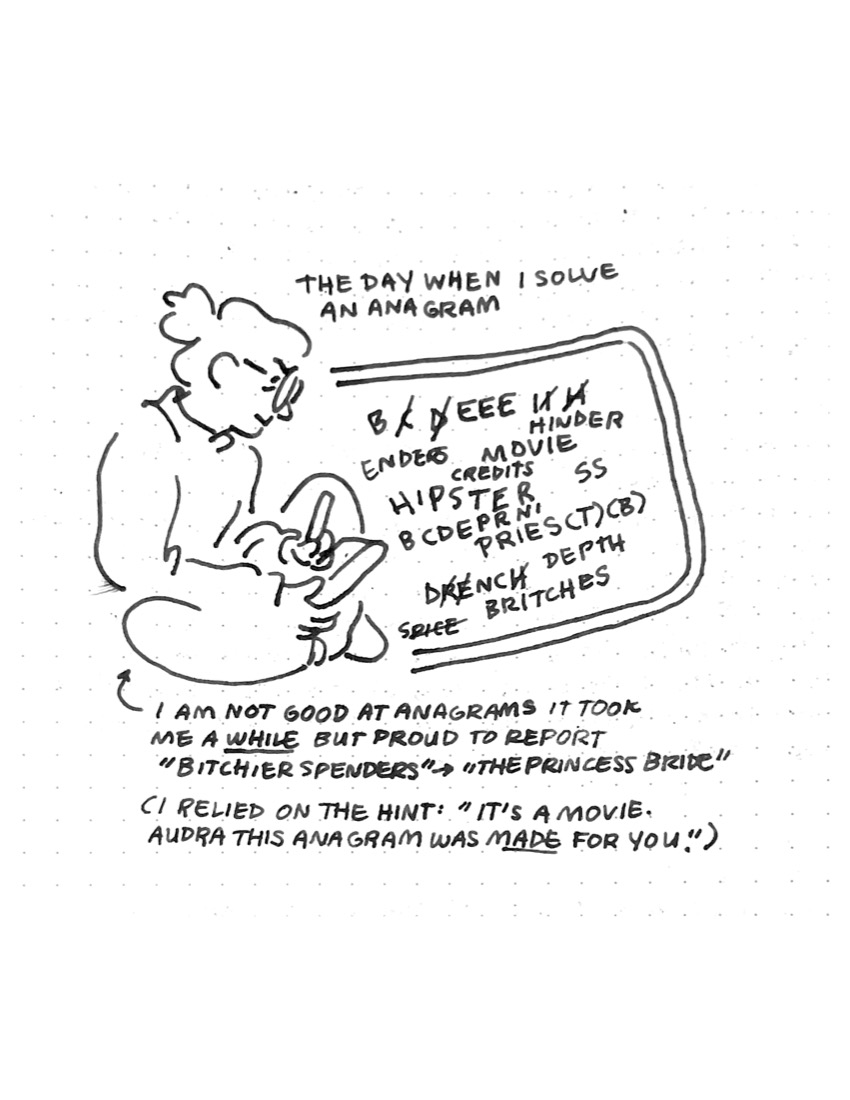 THE DAY WHEN I SOLVE
AN ANAGRAM
B C D EEE II H
HINDER
ENDERS MOVIE
CREDITS SS
HIPSTER
BCDEPRNI
PRIES(T)(B)
DRENCH DEPTH
SPICE BRITCHES
I AM NOT GOOD AT ANAGRAMS IT TOOK
ME A WHILE BUT PROUD TO REPORT
"BITCHIER SPENDERS" → "THE PRINCESS BRIDE"
(I RELIED ON THE HINT: "IT'S A MOVIE.
AUDRA THIS ANAGRAM WAS MADE FOR YOU.")